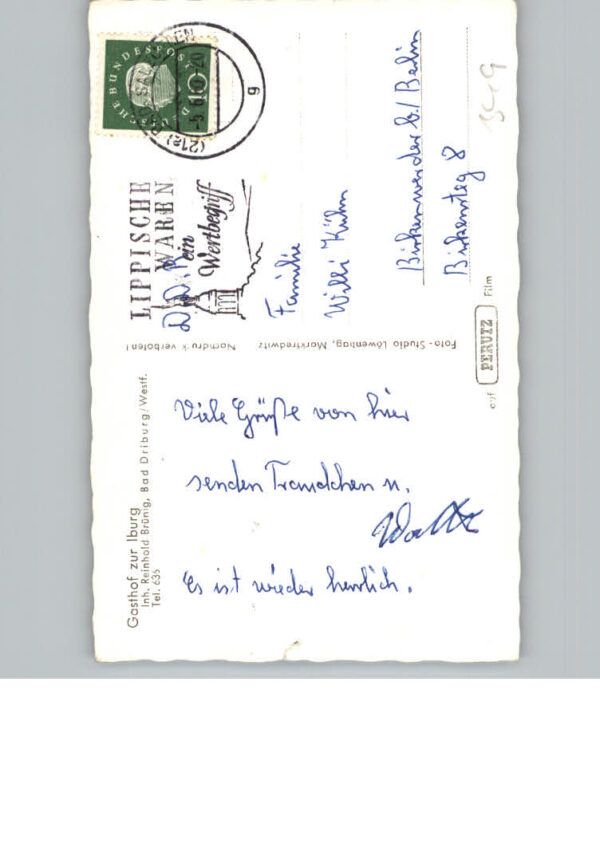 Gasthof zur Iburg
Inh. Reinhold Brünig, Bad Driburg/Westf.
Tel. 635
Viele Grüße von hier
senden Traudchen u.
Walter
Es ist wieder herrlich.
Foto-Studio Löwenhag, Marktredwitz Nachdruck verboten!
DEUTSCHE BUNDESPOST
10
(21a) BAD SALZUFLEN
-5.6.60-20
g
LIPPISCHE
WAREN
ein
Wertbegriff
D.D.R.
Familie
Willi Kühn
Birkenwerder b./Berlin
Birkensteg 8
auf
PERUTZ
Film